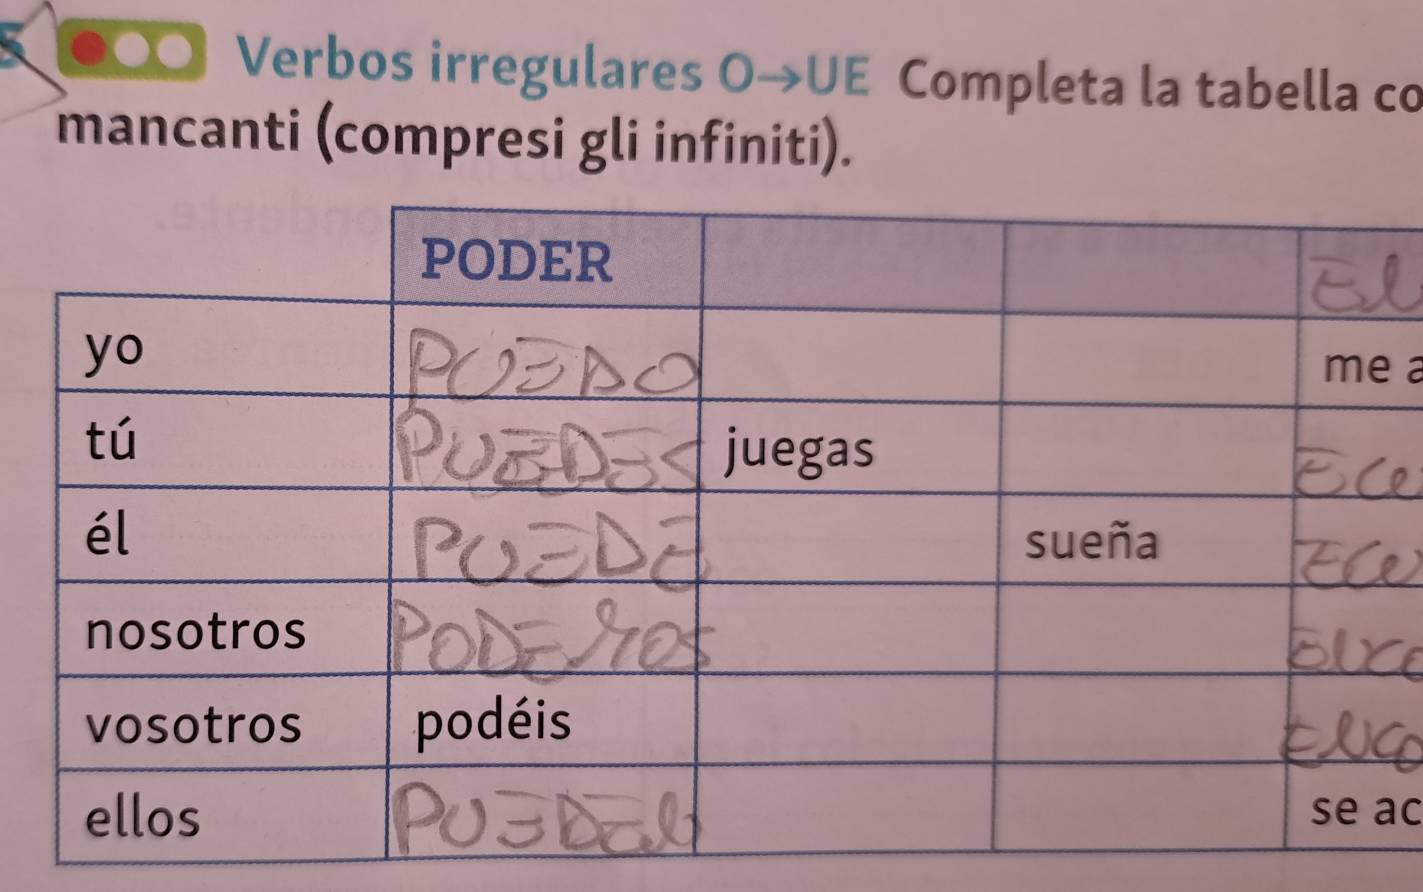 5 Verbos irregulares O→UE Completa la tabella co
mancanti (compresi gli infiniti).
PODER
yo PUEDO me a
tú PUEDES juegas
él PUEDE sueña
nosotros PODEMOS
vosotros podéis
ellos PUEDEN se ac